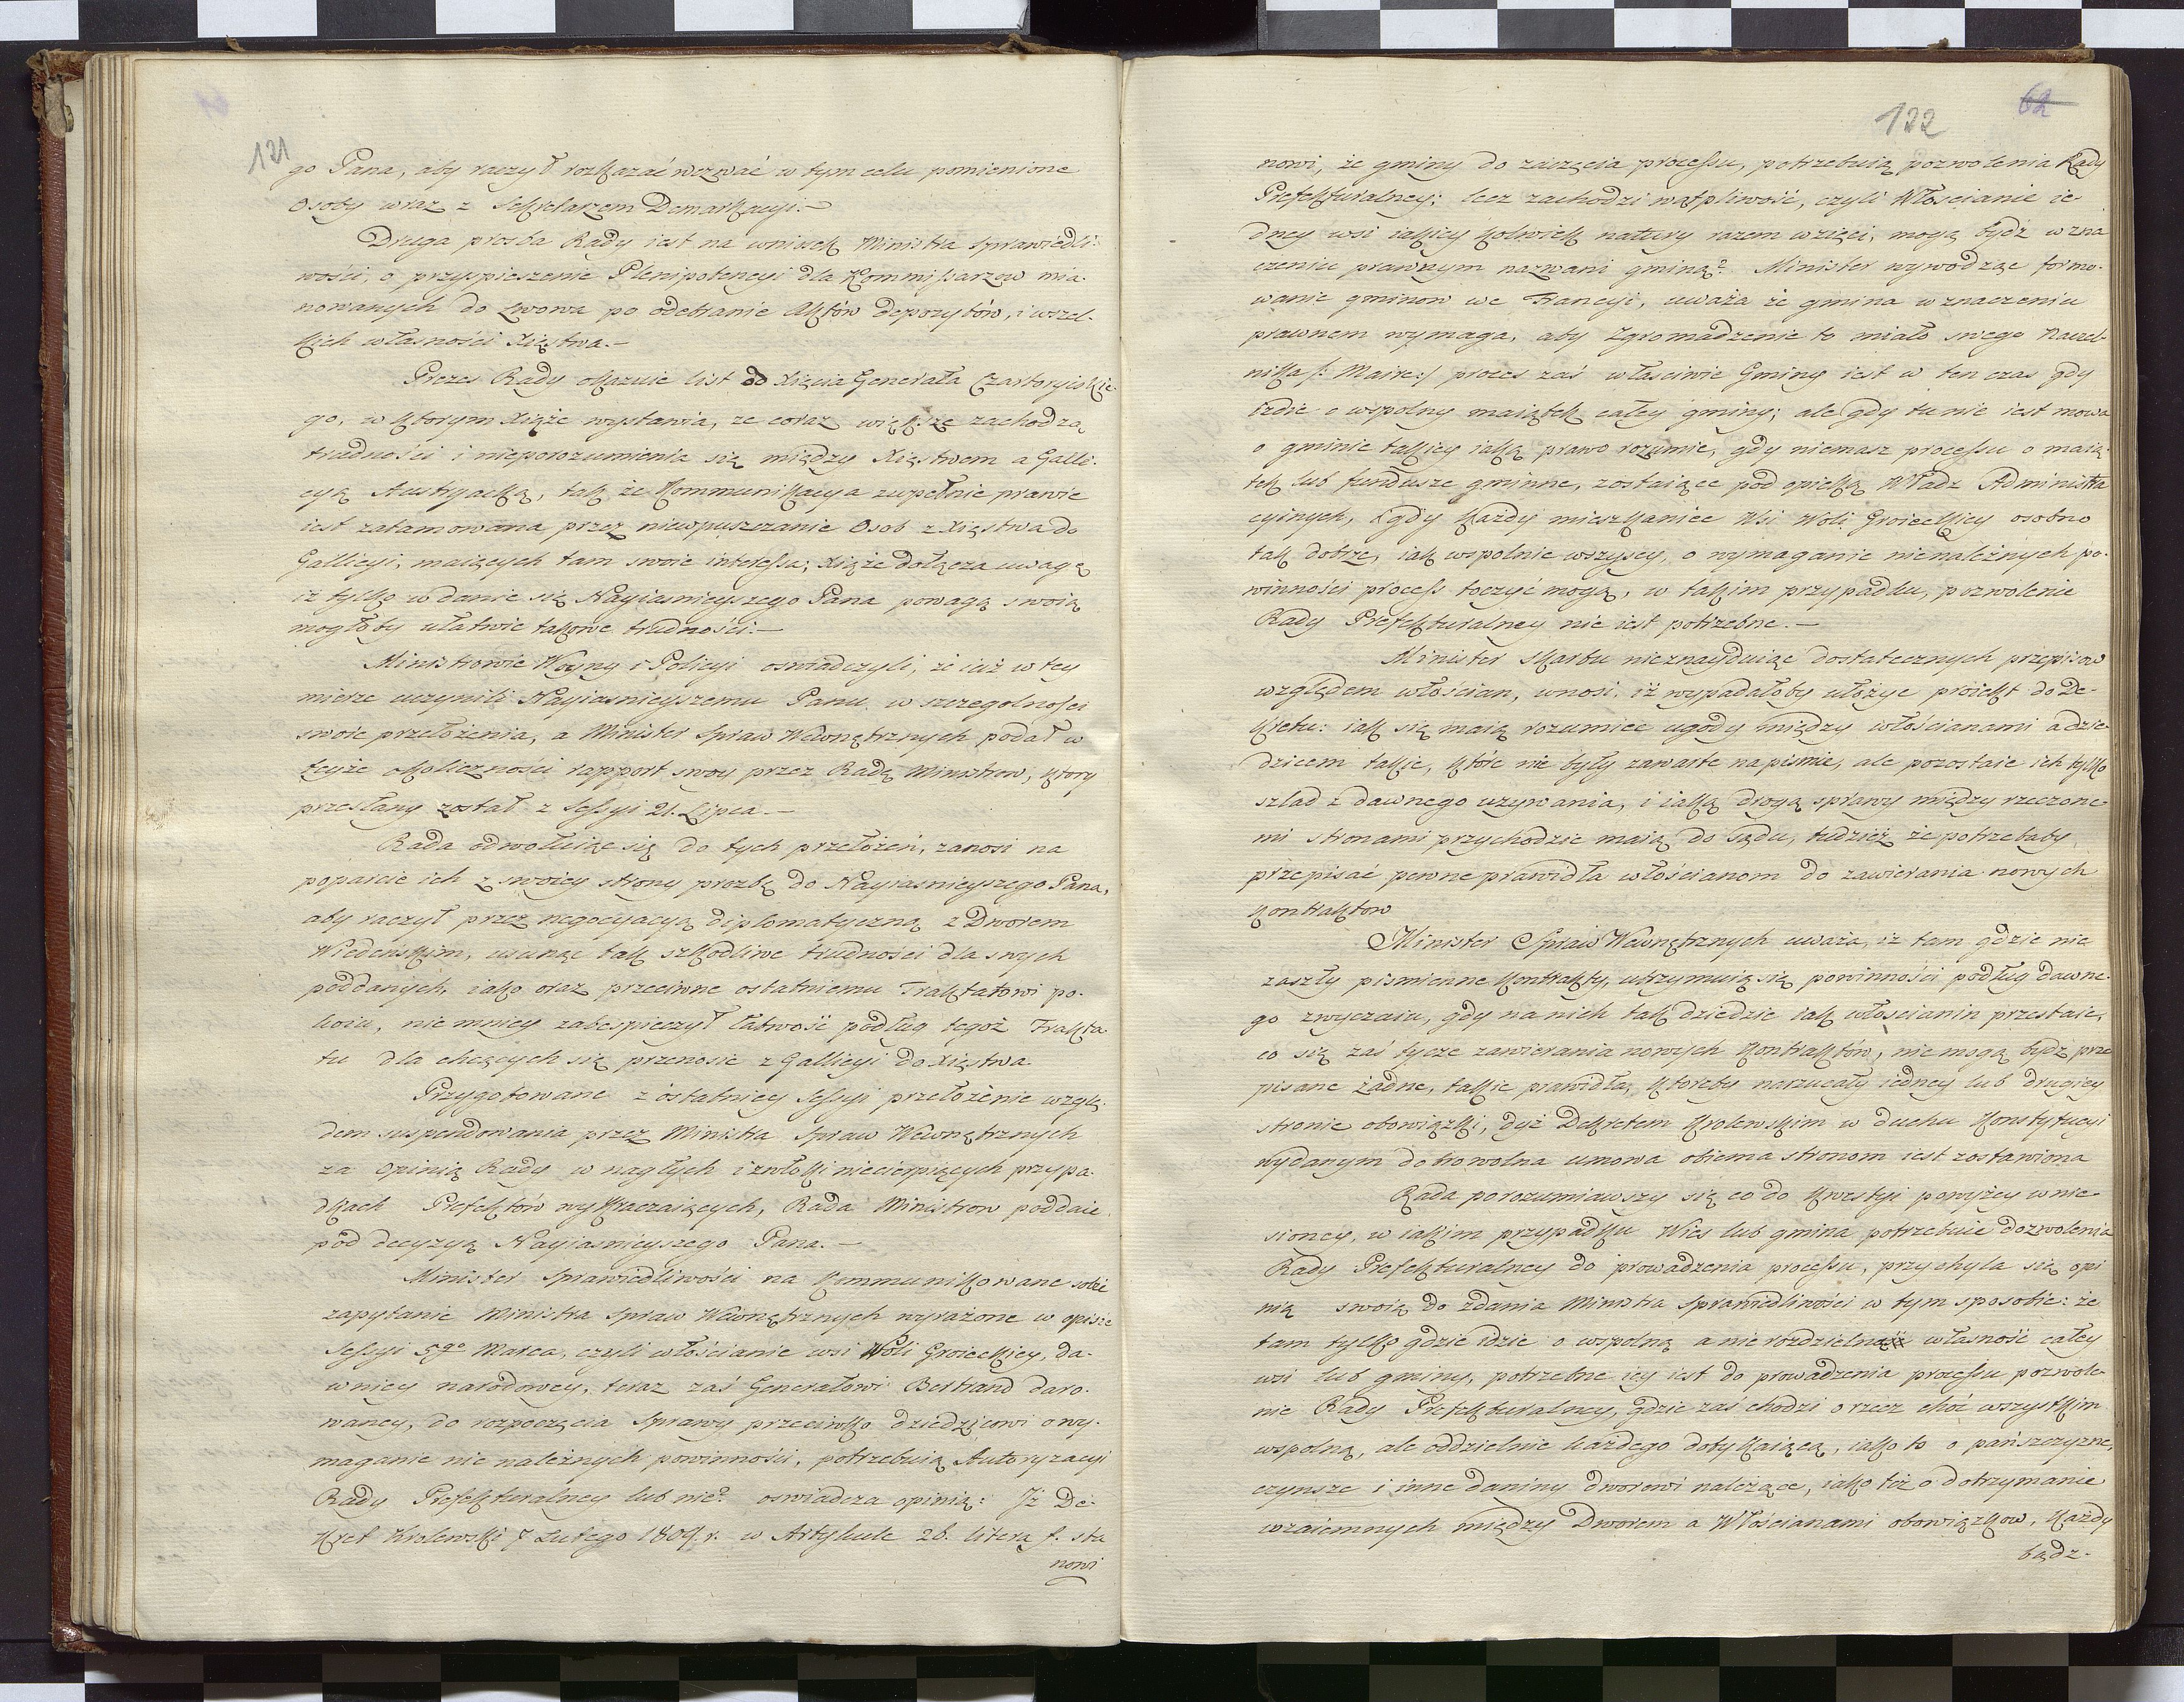 121
go Pana, aby raczył rozkazać wezwać w tym celu pomienione
Osoby wraz z Sekretarzem Demarkacyi.—
Druga prosba Rady iest na wniosek Ministra Sprawiedli-
wości, o przyspieszenie Plenipotencyi dla Kommissarzow mia-
nowanych do Lwowa po odebranie Aktów depozytów, i wszel-
kich własności Xięstwa.—
Prezes Rady okazuie list od Xięcia Generała Czartoryiskie-
go, w ktorym Xiąże wystawia, ze coraz większe zachodzą
trudności i nieporozumienia się między Xięstwem a Galli-
cyą Austryacką, tak że Kommunikacya zupełnie prawie
iest zatamowana przez niewpuszczanie Osob z Xięstwa do
Gallicyi, maiących tam swoie interessa; Xiąże dołącza uwagę
iz tylko wdanie się Nayiasnieyszego Pana powagą swoią
mogłoby ułatwic takowe trudności.—
Ministrowie Woyny i Policyi oswiadczyli, że iuż w tey
mierze uczynili Nayiasnieyszemu Panu w szczegolności
swoie przełożenia, a Minister Spraw Wewnętrznych podał w
teyże okoliczności rapport swoy przez Radę Ministrow, ktory
przesłany został z Sessyi 21. Lipca.—
Rada odwołuiąc się do tych przełożeń, zanosi na
poparcie ich z swoiey strony prozbę do Nayiasnieyszego Pana,
aby raczył przez negocyacyą diplomatyczną z Dworem
Wiedeńskim, usunąc tak szkodliwe trudności dla swych
poddanych, iako oraz przeciwne ostatniemu Traktatowi po-
koiu, nie mniey zabespieczył łatwość podług tegoż Trakta-
tu dla chcących się przenosic z Gallicyi do Xięstwa
Przygotowane z ostatniey Sessyi przełożenie wzglę-
dem suspendowania przez Ministra Spraw Wewnętrznych
za opinią Rady w nagłych i zwłoki niecierpiących przypa-
dkach Prefektów wykraczaiących, Rada Ministrow poddaie
pod decyzyą Nayiasnieyszego Pana.—
Minister Sprawiedliwości na kommunikowane sobie
zapytanie Ministra Spraw Wewnętrznych wyrażone w opisie
Sessyi 5go Marca, czyli włościanie wsi Woli Groieckiey, da-
wniey narodowey, teraz zaś Generałowi Bertrand daro-
waney, do rozpoczęcia Sprawy przeciwko dziedzicowi o wy-
maganie nie należnych powinności, potrzebuią Autoryzacyi
Rady Prefekturalney lub nie? oswiadcza opinią: Iż De-
kret Krolewski 7 Lutego 1809. r. w Artykule 26. litera f. sta
nowi
122
62
nowi, że gminy do zaczęcia processu, potrzebuią pozwolenia Rady
Prefekturalney: lecz zachodzi wątpliwość, czyli Włoscianie ie-
dney wsi iakiey kolwiek natury razem wzięci, mogą bydź w zna
czeniu prawnym nazwani gminą? Minister wywodząc formo-
wanie gminow we Francyi, uważa że gmina w znaczeniu
prawnem wymaga, aby Zgromadzenie to miało swego naczel-
nika /: Maire:/ proces zaś własciwie Gminy iest w ten czas gdy
idzie o wspolny maiątek całey gminy; ale gdy tu nie iest mowa
o gminie takiey iaką prawo rozumie, gdy niemasz processu o maią-
tek lub fundusze gminne, zostaiące pod opieką Władz Administra
cyinych, i gdy każdy mieszkaniec Wsi Woli Groieckiey osobno
tak dobrze, iak wspolnie wszyscy, o wymaganie nienależnych po-
winności process toczyć mogą, w takim przypadku, pozwolenie
Rady Prefekturalney nie iest potrzebne.—
Minister skarbu nieznayduiąc dostatecznych przepisow
względem włościan, wnosi, iż wypadałoby ułożyc proiekt do De-
kretu: iak się maią rozumiec ugody między włościanami a dzie-
dzicem takie, które nie były zawarte na pismie, ale pozostaie ich tylko
szlad z dawnego uzywania, i iaką drogą sprawy między rzeczone-
mi stronami przychodzic maią do Sądu, tudzież że potrzebaby
przepisać pewne prawidła włościanom do zawierania nowych
kontraktow
Minister Spraw Wewnętrznych uważa, iz tam gdzie nie
zaszły pismienne kontrakty, utrzymuią się powinności podług dawne-
go zwyczaiu, gdy na nich tak dziedzic iak włoscianin przestaie,
co się zaś tycze zawierania nowych kontraktów, nie mogą bydz prze
pisane żadne, takie prawidła, ktoreby narzucały iedney lub drugiey
stronie obowiązki, dyż Dekretem Krolewskim w duchu Konstytucyi
wydanym dobrowolna umowa obiema stronom iest zostawiona
Rada porozumiawszy się co do kwestyi powyżey wnie-
sioney, w iakim przypadku Wies lub gmina potrzebuie dozwolenia
Rady Prefekturalney do prowadzenia processu, przychyla się opi
nią swoią do zdania Ministra Sprawiedliwości w tym sposobie: że
tam tylko gdzie idzie o wspolną a nierozdzielną własność całey
wsi lub gminy, potrzebne iey iest do prowadzenia processu pozwole-
nie Rady Prefekturalney, gdzie zaś chodzi o rzecz choć wszystkim
wspolną, ale oddzielnie każdego dotykaiącą, iako to o pańszczyznę,
czynsze i inne daniny dworowi należące, iako też o dotrzymanie
wzaiemnych między Dworem a Włościanami obowiązkow, każdy
bądz-